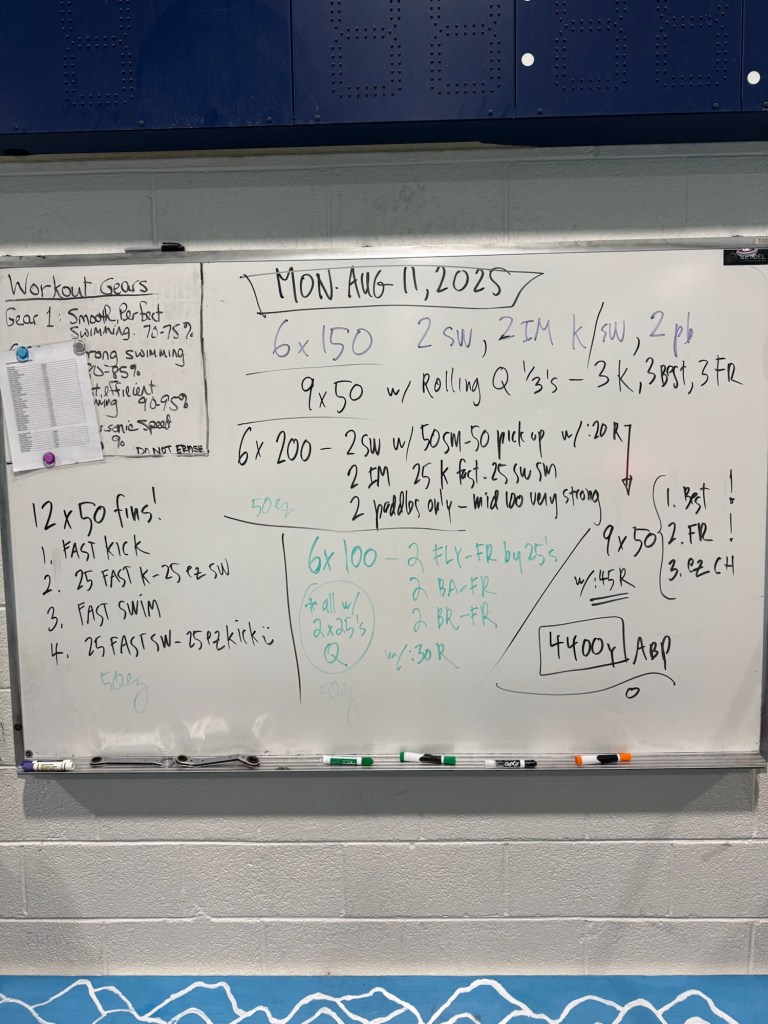 Workout Gears
Gear 1: Smooth, Perfect
Swimming. 70-75%
rong swimming
80-85%
t, efficient
ming 90-95%
sonic Speed
%
DO NOT ERASE
MON. AUG 11, 2025
6 x 150 2 SW, 2 IM K/SW, 2 pb
9 x 50 w/ Rolling Q 1/3's - 3 K, 3 Best, 3 FR
6 x 200 - 2 SW w/ 50 SM-50 pick up w/ :20 R
2 IM 25 K fast-25 SW SM
2 paddles only - mid 100 very strong
50 ez
12 x 50 fins!
1. FAST KICK
2. 25 FAST K-25 ez SW
3. FAST SWIM
4. 25 FAST SW-25 ez kick
50 ez
6 x 100 - 2 FLY-FR by 25's
2 BA-FR
2 BR-FR
w/ :30 R
* all w/
2x25's
Q
50 ez
9 x 50
w/ :45 R
1. Best !
2. FR !
3. ez CH
4400y ABP